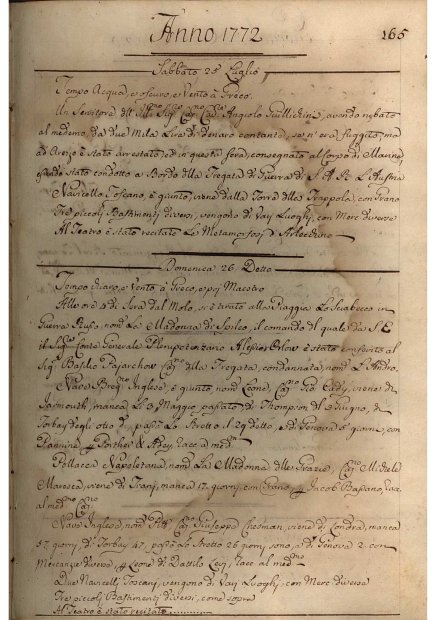 Anno 1772
165
Sabbato 25 Luglio
Tempo Acqua, e scuro, e Vento à Greco.
Un Servitore dell' Ill.mo Sig. Cap.no Cav.re Angiolo Guillichini, avendo rubato
al medemo, da due Mila Lire di denaro contanti, se n' era fuggito, ma
ad Arezo è stato arrestato, e in questa sera, consegnato al Corpo di Marina
è stato condotto a Bordo della Fregata di Guerra di S. A. R. L'Austria
Navicello Toscano, è giunto, viene dalla Torre della Trappola, con Grano
Tre piccoli Bastimenti diversi, vengono di Varj Luoghi, con Merc. diverse
Al Teatro è stato recitato Le Metamorfosi d'Arlecchino
Domenica 26. Detto
Tempo chiaro, e Vento à Greco, e poi Maestro
All' ore di Sera dal Molo, si è tirato alla Piaggia Lo Sciabecco in
Guerra Russo, nom. La Madonna di il comando del quale da S. E.
il Sig. Conte Generale Plenipotenziario Alessio Orlow è stato conferito al
Sig. Basilio Cap.no della Fregata, condannata, nom. L'Andro.
Nave Inglese, è giunto, nom. Leone, Cap.no Gio. viene di
Yarmouth, manca Li 3 Maggio passato, di Thompson il Giugno, di
Torbay gli otto d.o, passò Lo Stretto il 29 detto, e di Genova 5 giorni, con
p. Porther & Adey, tace al med.mo
Pollacca Napoletana, nom. La Madonna delle Grazie, Cap. Michele
viene di Trani, manca 17. giorni, con Grano, p. Jacob Bassano, tace
al med.mo Cap.no
Nave Inglese, nom. Pitt, Cap. Giuseppe Chesman, viene di Londra, manca
57. giorni, di Torbay 47, passò Lo Stretto 26 giorni sono, e di Genova 2. con
Mercanzie diverse, p. Leone di Dattilo Levj, tace al med.mo
Due Navicelli Toscani, vengono di Varj Luoghi, con Merc. diverse
Tre piccoli Bastimenti diversi, come sopra
Al Teatro è stato recitato